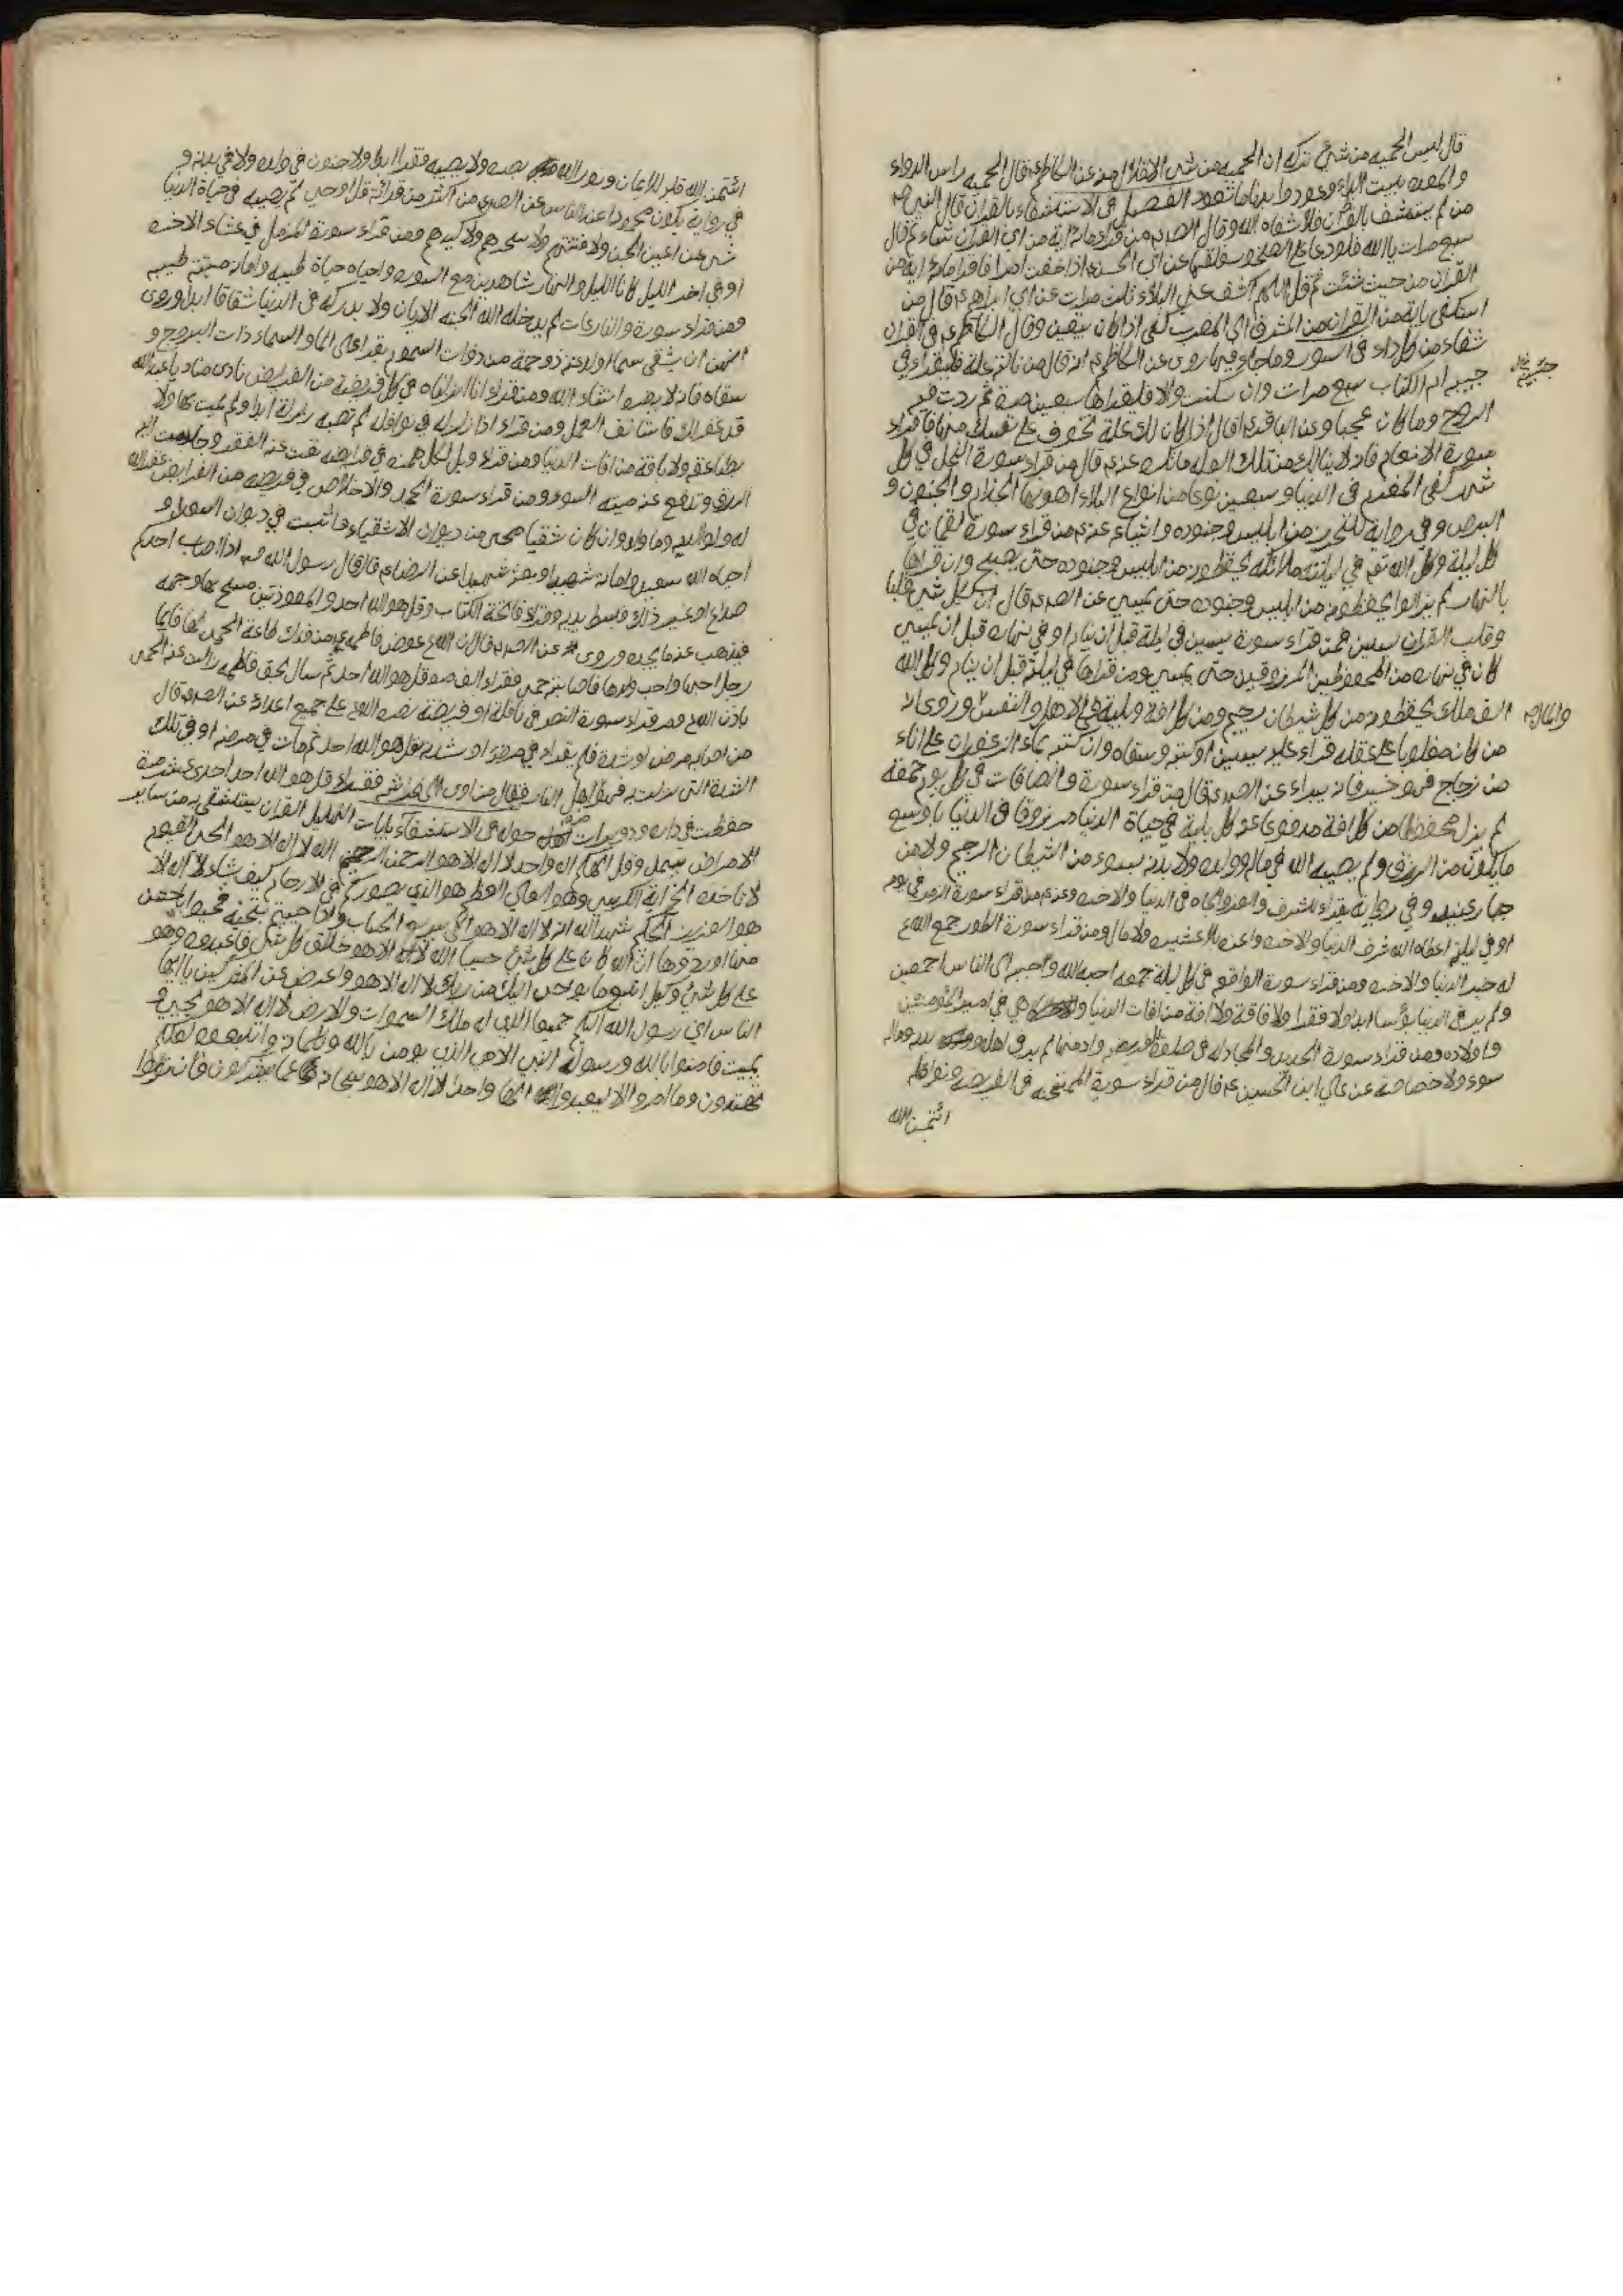 قال ليس الحمية من شيء تركه ان الحمية من شيء الاقلال منه عن الكاظم ع قال الحمية راس الدواء
والمعده بيت الداء وعود بدنا ما تعود الفصل في الاستشفاء بالقران قال النبي ص
من لم يستشف بالقرآن فلا شفاه الله وقال الصادق من قراء مائة اية من اي القرآن شاء ثم قال
سبع مرات يا الله فلو دعا على الصخر لقلعها عن ابي الحسن ع اذا خفت امرا فاقرا مائة اية من
القرآن من حيث شئت ثم قل اللهم اكشف عني البلاء ثلث مرات عن ابي ابراهيم ع قال من
استكفى باية من القران من المشرق الى المغرب كفى اذا كان بيقين وقال الكاظم ع في القران
شفاء من كل داء في السور وما جاء فيها روى عن الكاظم ع انه قال من نالته علة فليقراء في
جيبه ام الكتاب سبع مرات وان سكنت والا فليقراها سبعين مرة ثم ردت فيه
الروح وما كان عجبا وعن الباقر ع قال اذا كان لك علة تخوف على نفسك منها فاقراء
سورة الانعام فانه لا ينالك من تلك العله ما تكره عنه ع قال من قراء سورة النحل في كل
شهر كفى المغرم في الدنيا وسبعين نوعا من انواع البلاء اهونها الجذام والجنون و
البرص وفي رواية للتحرز من ابليس وجنوده واشياعه عنه ع من قراء سورة لقمان في
كل ليلة وكل الله به في ليلته ملائكة يحفظونه من ابليس وجنوده حتى يصبح وان قراها
بالنهار لم يزالوا يحفظونه من ابليس وجنوده حتى يمسي عن الصادق قال ان لكل شيء قلبا
وقلب القران يسين فمن قراء سورة يسين في ليلة قبل ان ينام او في نهاره قبل ان يمسي
كان في نهاره من المحفوظين المرزوقين حتى يمسي ومن قراها في ليلة قبل ان ينام وكل الله
الف ملك يحفظونه من كل شيطان رجيم ومن كل افة وبلية في الاهل والنفس وروى انه
من كان مغلوبا على عقله قراء عليه يسين او كتبه وسقاه وان كتبه بماء الزعفران على اناء
من زجاج فهو خير فانه يبراء عن الصادق قال من قراء سورة والصافات في كل يوم جمعة
لم يزل محفوظا من كل افة مدفوعا عنه كل بلية في حياة الدنيا مرزوقا في الدنيا باوسع
ما يكون من الرزق ولم يصيبه الله في ماله وولده ولا بدنه بسوء من الشيطان الرجيم ولا من
جبار عنيد وفي رواية يقراء للشرف والعز والجاه في الدنيا والاخره وعنه ع من قراء سورة الزمر في يومه
او في ليلته اعطاه الله شرف الدنيا والاخره واعزه بلا عشيره ولا مال ومن قراء سورة الطور جمع الله
له خير الدنيا والاخره ومن قراء سورة الواقعه في كل ليلة جمعه احبه الله واحبه الى الناس اجمعين
ولم ير في الدنيا بؤسا ابدا ولا فقرا ولا فاقة ولا افة من افات الدنيا وهي في امير المؤمنين
واولاده ومن قراء سورة الحديد والمجادله في صلوة الفريضه وادمنها لم ير في اهله بدنه وماله
سوء ولا خصاصة عن علي ابن الحسين ع قال من قراء سورة الممتحنه في الفرايض ونوافله
امتحن الله
امتحن الله قلبه للايمان ونور الله بصره ولا يصيبه فقرا ابدا ولا جنون في ولده ولا في بدنه و
في رواية يكون محمودا عند الناس عن الصادق من اكثر من قراءة قل اوحي لم يصيبه في حياة الدنيا
شيء من اعين الجن ولا فتنتهم ولا سحرهم ولا كيدهم ومن قراء سورة المزمل في عشاء الاخره
او في اخر الليل كانا الليل والنهار شاهدين مع السوره واحياه حياة طيبه واماته ميتة طيبه
ومن قراء سورة والنازعات لم يدخله الله الجنه الا ريان ولا يدركه في الدنيا شقاقا ابدا وروى
انه من ان يسقى سما او لدغه ذو حمة من ذوات السموم يقراء على الماء والسماء ذات البروج و
سقاه فانه لا يضره انشاء الله ومن قراء انا انزلناه في كل فريضة من الفرايض نادى مناد يا عبد الله
قد غفر لك فاستانف العمل ومن قراء اذا زلزله في نوافله لم تصبه زلزلة ابدا ولم يمت بها ولا
بصاعقه ولا بافة من افات الدنيا ومن قراء ويل لكل همزه في فرايضه نفت عنه الفقر وجلبت اليه
الرزق وتدفع عنه ميته السوء ومن قراء سورة الجحد والاخلاص في فريضه من الفرايض غفر الله
له ولوالديه وما ولد وان كان شقيا محي من ديوان الاشقياء واثبت في ديوان السعداء و
احياه الله سعيدا واماته شهيدا وبعثه شهيدا عن الرضا ع قال قال رسول الله ص اذا اصاب احدكم
صداع او غير ذلك فبسط يديه وقراء فاتحة الكتاب وقل هو الله احد والمعوذتين مسح بها وجهه
فيذهب عنه ما يجده وروى عن الصادق قال ان الله عوض فاطمه ع من فدك طاعة الحمى لها فايما
رجل احبها واحب ولدها فاصابته حمى فقراء الف مره قل هو الله احد ثم سال بحق فاطمه زالت عنه الحمى
باذن الله ومن قراء سورة النصر في نافلة او فريضة نصره الله على جميع اعدائه عن الصادق قال
من اصابه مرض او شدة فلم يقراء في مرضه او شدته بقل هو الله احد ثم مات في مرضه او في تلك
الشدة التي نزلت به فهو من اهل النار وقال من اوى الى فراشه فقراء قل هو الله احد احدى عشر مرة
حفظت في داره ودويرات حوله في الاستشفاء بايات التهليل القران يستشفى به من ساير
الامراض يبسمل وقل الهكم اله واحد لا اله الا هو الرحمن الرحيم الله لا اله الا هو الحي القيوم
لا تاخذه الخ اية الكرسي وهو العلي العظيم هو الذي يصوركم في الارحام كيف يشاء لا اله الا
هو العزيز الحكيم شهد الله انه لا اله الا هو الى سريع الحساب واذا حييتم بتحية فحيوا باحسن
منها او ردوها ان الله كان على كل شيء حسيبا الله لا اله الا هو خالق كل شيء فاعبدوه وهو
على كل شيء وكيل اتبع ما يوحى اليك من ربك لا اله الا هو واعرض عن المشركين يا ايها
الناس اني رسول الله اليكم جميعا الذي له ملك السموات والارض لا اله الا هو يحيي و
يميت فامنوا بالله ورسوله النبي الامي الذي يومن بالله وكلماته واتبعوه لعلكم
تهتدون وما امروا الا ليعبدوا الها واحدا لا اله الا هو سبحانه عما يشركون فان تولوا